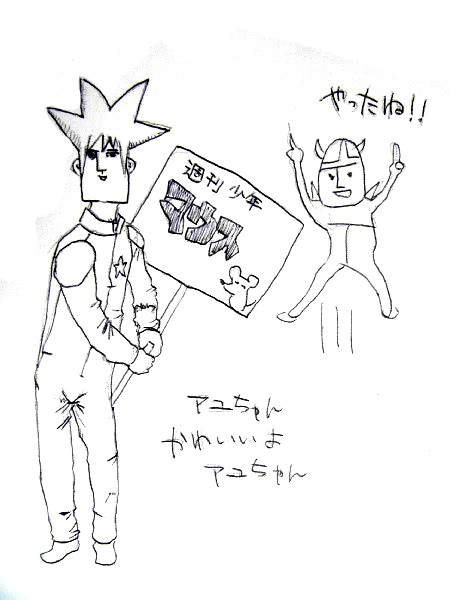 やったね!!
週刊 少年
マウス
アユちゃん
かわいいよ
アユちゃん